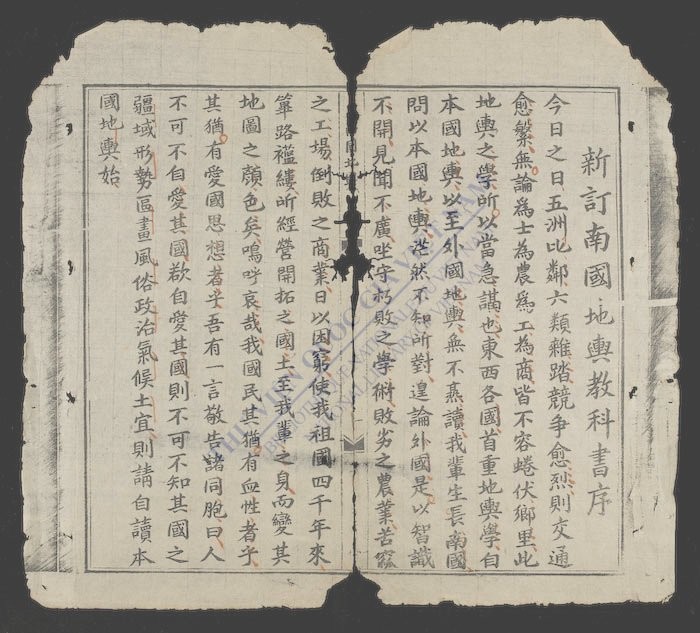 新訂南國地輿教科書序
今日之日五洲比鄰六類雜踏競争愈烈則交通
愈繁無論為士為農為工為商皆不容蜷伏鄉里此
地輿之學所以當急講也東西各國首重地輿學自
本國地輿以至外國地輿無不熹讀我輩生長南國
問以本國地輿茫然不知所對遑論外國是以智識
不開見聞不廣坐守朽敗之學術敗劣之農業苦窳
之工場倒敗之商業日以困窮使我祖國四千年來
篳路襤縷所經營開拓之國土至我輩之身而變其
地圖之顏色矣嗚呼哀哉我國民其猶有血性者乎
其猶有愛國思想者乎吾有一言敬告諸同胞曰人
不可不自愛其國欲自愛其國則不可不知其國之
疆域形勢區畫風俗政治氣候土宜則請自讀本
國地輿始
THƯ VIỆN QUỐC GIA VIỆT NAM